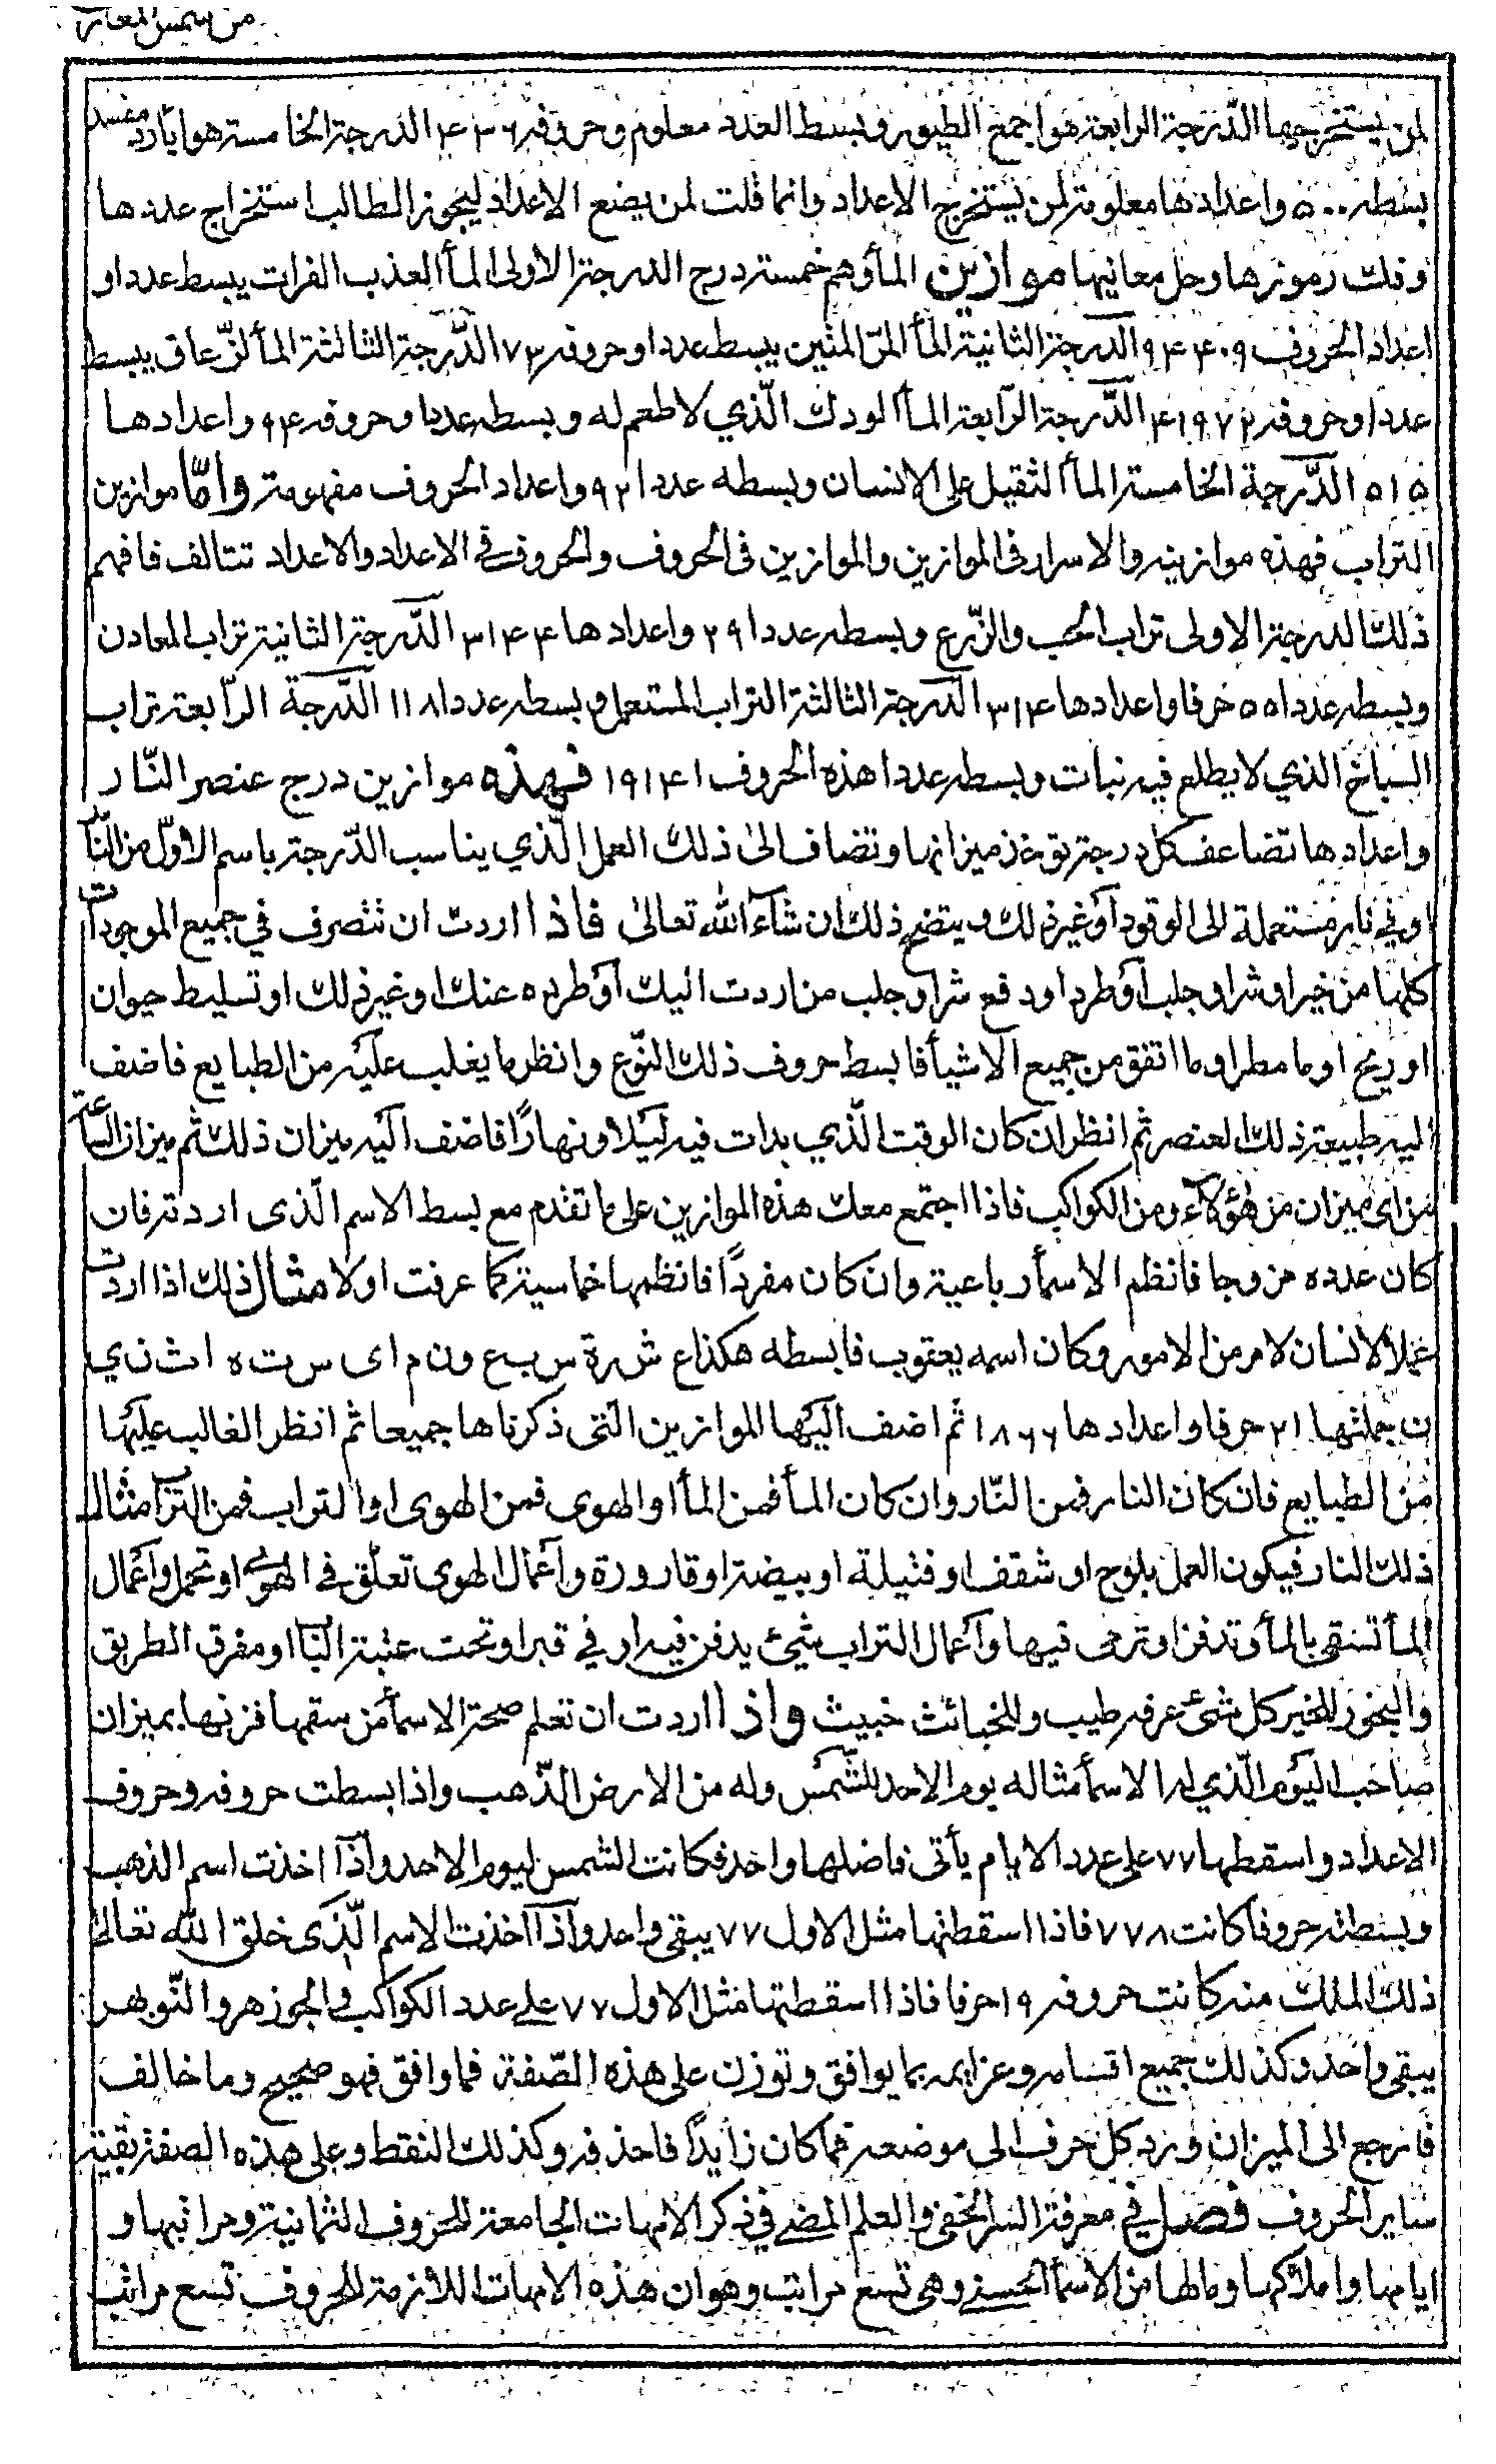 من شمس المعارف
لمن يستخرجها الدّرجة الرابعة هوا جمع الطيور وبسط العدد معلوم وحروفه ٤٣٦ الدّرجة الخامسة هوا بارد مفسد
بسطه ٥٠٠ واعدادها معلومة لمن يستخرج الاعداد وانما قلت لمن يضع الاعداد ليجوز الطالب استخراج عددها
وفك رموزها وحل معانيها موازين المأ وهم خمسة درج الدرجة الاولى المأ العذب الفرات يبسط عددا و
اعداد الحروف ٩٤٤٠٩ الدرجة الثانية المأ المرّ المنين يبسط عددا وحروفه ٧٣ الدّرجة الثالثة المأ لزّعاق يبسط
عددا وحروفه ٤١٩٧٢ الدّرجة الرّابعة المأ الودك الّذي لا طعم له وبسطه عددا وحروفه ٩٤ واعدادها
٥١٥ الدّرجة الخامسة المأ الثقيل على الانسان وبسطه عددا ٩٢ واعداد الحروف مفهومة وامّا موازين
التراب فهذه موازينه والاسرار فى الموازين والموازين فى الحروف والحروف في الاعداد والاعداد تتالف فافهم
ذلك الدرجة الاولى تراب الحب والزّرع وبسطه عددا ٢٩ واعدادها ٣١٤٤ الدّرجة الثانية تراب المعادن
وبسطه عددا ٥٥ حرفا واعدادها ٣١٤ الدّرجة الثالثة التراب المستعمل وبسطه عددا ١١٨ الدّرجة الرّابعة تراب
السباخ الذي لا يطلع فيه نبات وبسطه عددا هذه الحروف ١٩١٤١ فهذه موازين درج عنصر النّار
واعدادها تضاعف كل درجة تؤخذ ميزانها وتضاف الى ذلك العمل الّذي يناسب الدّرجة باسم الاوّل من النّا
اوفي نار مستعملة الى الوقود أو غير ذلك ويتضح ذلك ان شآء الله تعالى فاذا اردت ان تتصرف في جميع الموجودات
كلها من خير او شر او جلب أو طرد او دفع شر او جلب من اردت اليك أو طرده عنك او غير ذلك او تسليط حيوان
او ريح او ما مطر او ما اتفق من جميع الاشيأ فابسط حروف ذلك النّوع وانظر ما يغلب عليه من الطبايع فاضف
اليه طبيعة ذلك العنصر ثم انظر ان كان الوقت الّذي بدات فيه ليلا او نهارًا فاضف اليه ميزان ذلك ثم ميزان السّاعة
من اى ميزان من هؤلآء ومن الكواكب فاذا اجتمع معك هذه الموازين على ما تقدم مع بسط الاسم الّذى اردته فان
كان عدده مزوجا فانظم الاسمأ رباعية وان كان مفردًا فانظمها خماسية كما عرفت اولا مثال ذلك اذا اردت
عملا لانسان لامر من الامور وكان اسمه يعقوب فابسطه هكذا ع ش ر ة س ب ع و ن م ا ى س ت ه ا ث ن ي
ن جملتها ٢١ حرفا واعدادها ١٨٦٦ ثم اضف اليها الموازين التى ذكرناها جميعا ثم انظر الغالب عليها
من الطبايع فان كان النار فمن النّار وان كان المأ فمن المأ او الهوى فمن الهوى او التراب فمن التراب مثال
ذلك النار فيكون العمل بلوح او شقف او فتيلة او بيضة او قارورة وأعمال الهوى تعلّق في الهوى او تحمل وأعمال
المأ تسقى بالمأ وتدفن او ترمى فيها وأعمال التراب شيئ يدفن فيه او في قبر او تحت عتبة الباب او مفرق الطريق
والبخور للخير كل شيئ عرفه طيب وللخبائث خبيث واذا اردت ان تعلم صحة الاسمأ من سقمها فزنها بميزان
صاحب اليوم الّذي له الاسمأ مثاله يوم الاحد للشّمس وله من الارض الذّهب واذا بسطت حروفه وحروف
الاعداد واسقطها ٧٧ على عدد الايام يأتى فاضلها واحد فكانت الشمس ليوم الاحد وآذا اخذت اسم الذهب
وبسطته حروفا كانت ٧٧٨ فاذا اسقطتها مثل الاول ٧٧ يبقى واحد وآذا اخذت الاسم الّذى خلق الله تعالى
ذلك الملك منه كانت حروفه ١٩ حرفا فاذا اسقطتها مثل الاول ٧٧ على عدد الكواكب والجوزهر والنّوبهر
يبقى واحد وكذلك جميع اقسامه وعزايمه بما يوافق وتوزن على هذه الصّفة فما وافق فهو صحيح وما خالف
فارجع الى الميزان ورد كل حرف الى موضعه فما كان زايدًا فاحذفه وكذلك النقط وعلى هذه الصفة بقية
ساير الحروف فصل في معرفة السر الخفى والعلم المضى فى ذكر الامهات الجامعة للحروف الثمانية ومراتبها و
ايامها واملاكها وما لها من الاسمأ الحسنى وهى تسع مراتب وهو ان هذه الامهات اللازمة للحروف تسع مراتب